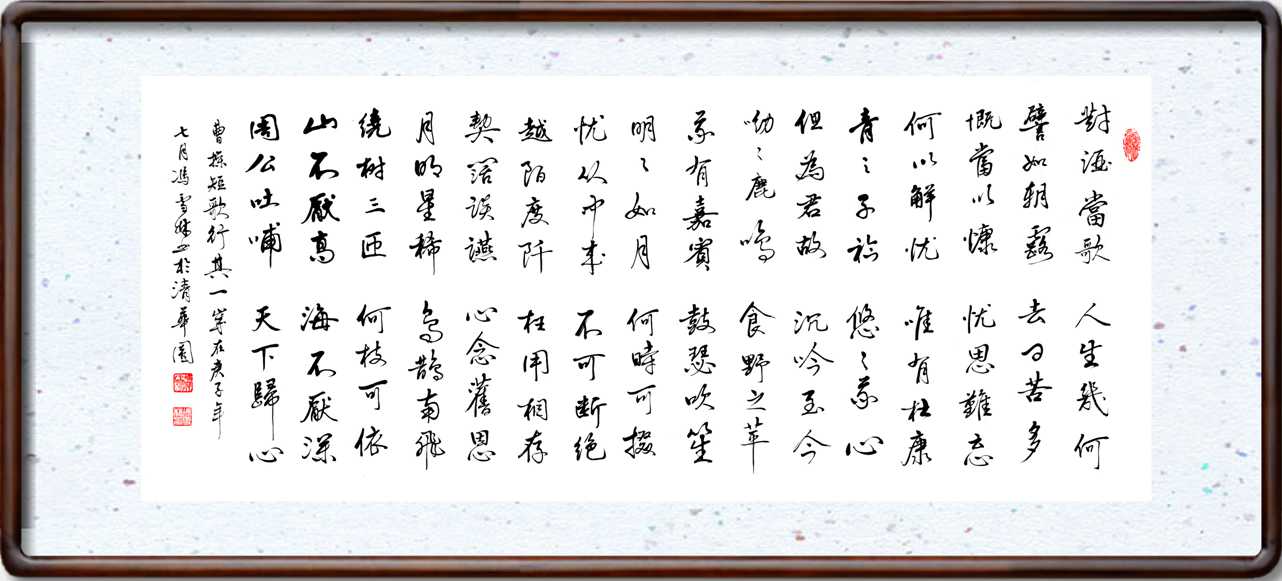 對酒當歌 人生幾何
譬如朝露 去日苦多
慨當以慷 忧思難忘
何以解忧 唯有杜康
青〻子衿 悠〻我心
但為君故 沉吟至今
呦〻鹿鳴 食野之苹
我有嘉賓 鼓瑟吹笙
明〻如月 何時可掇
忧从中来 不可断绝
越陌度阡 枉用相存
契阔談讌 心念舊恩
月明星稀 烏鹊南飛
繞树三匝 何枝可依
山不厭高 海不厭深
周公吐哺 天下歸心
曹操短歌行其一 寫在庚子年
七月冯雪书於清華園